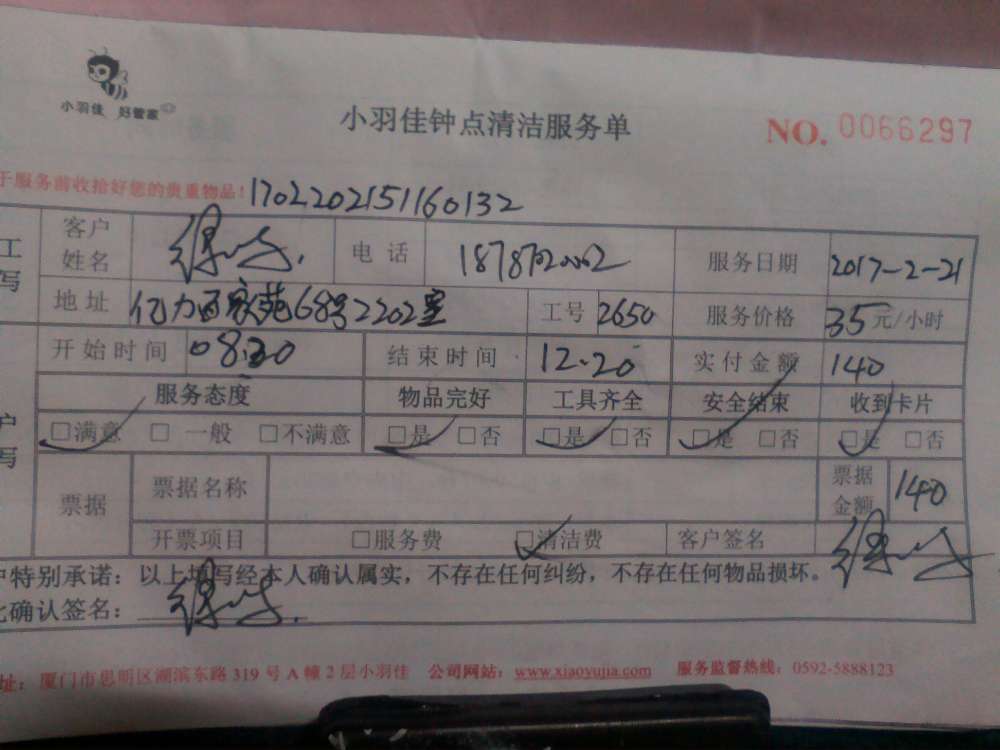 小羽佳 好管家
小羽佳钟点清洁服务单
NO. 0066297
于服务前收拾好您的贵重物品! 1702202151160132
工
写
客户
姓名
电话
服务日期 2017-2-21
地址 亿力百家苑68号2202室 工号 2650 服务价格 35元/小时
开始时间 08:20 结束时间 12:20 实付金额 140
服务态度 物品完好 工具齐全 安全结束 收到卡片
户
写
□满意 □一般 □不满意 □是 □否 □是 □否 □是 □否 □是 □否
票据 票据名称 票据金额 140
开票项目 □服务费 □清洁费 客户签名
户特别承诺：以上填写经本人确认属实，不存在任何纠纷，不存在任何物品损坏。
此确认签名：
址：厦门市思明区湖滨东路 319 号 A 幢 2 层小羽佳 公司网站：www.xiaoyujia.com 服务监督热线：0592-5888123